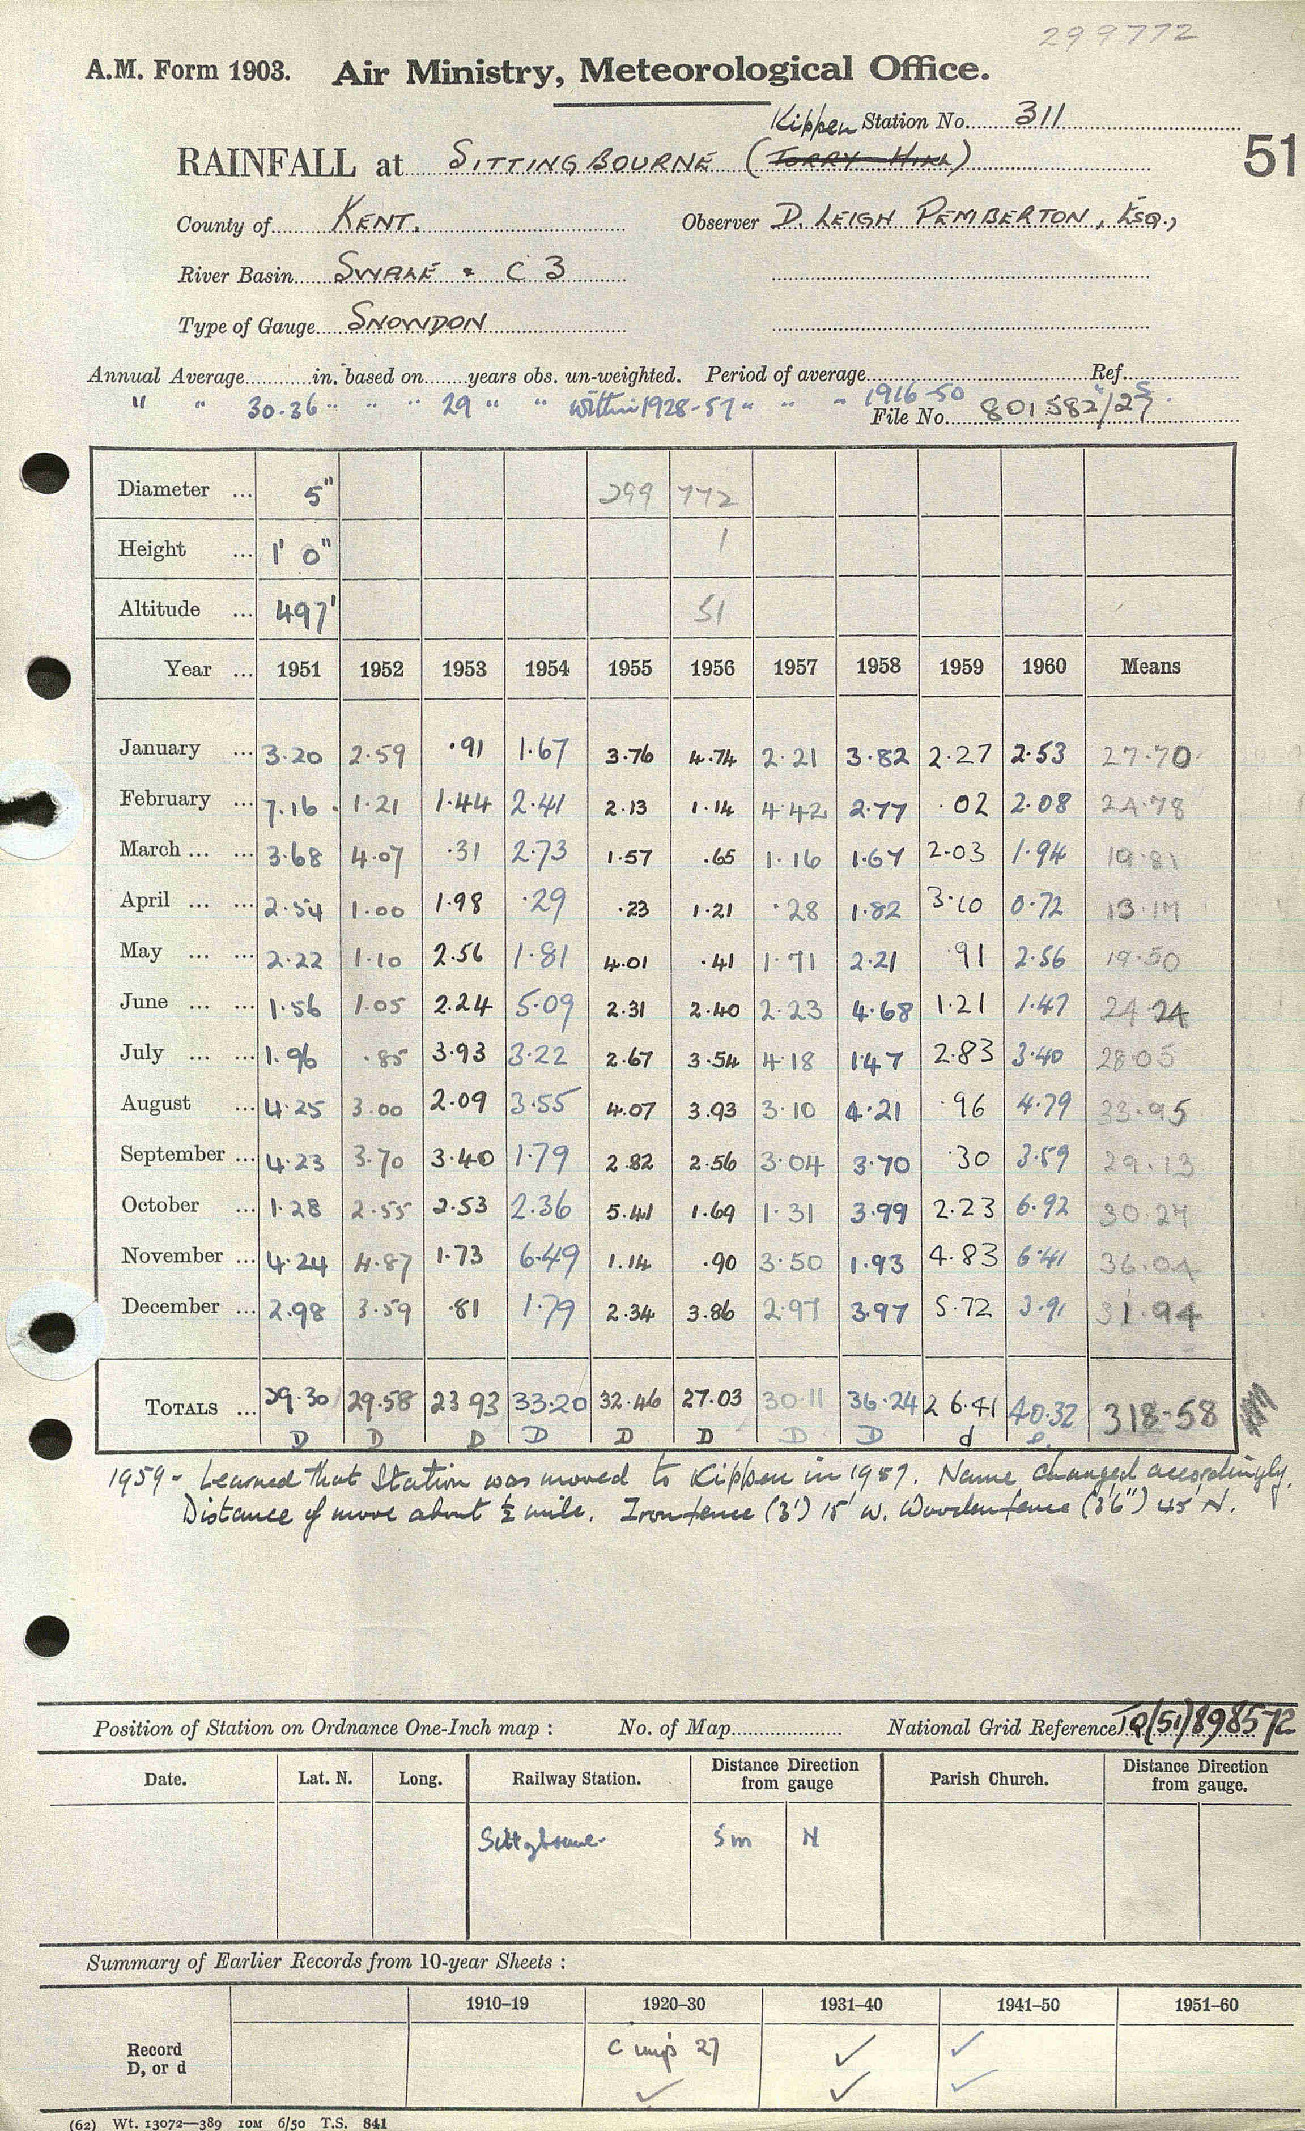 299772
A.M. Form 1903. Air Ministry, Meteorological Office.
Kippen Station No. 311
RAINFALL at SITTINGBOURNE (TORRY HILL)
51
County of KENT. Observer D. LEIGH PEMBERTON, ESQ.,
River Basin SWALE & C 3
Type of Gauge SNOWDON
Annual Average in. based on years obs. un-weighted. Period of average Ref.
" " 30.36 " " " 29 " " within 1928-57 " " " 1916-50
File No. 801582/27
Diameter ... 5" 299 772
Height ... 1' 0" 1
Altitude ... 497' 51
Year ... 1951 1952 1953 1954 1955 1956 1957 1958 1959 1960 Means
January ... 3.20 2.59 .91 1.67 3.76 4.74 2.21 3.82 2.27 2.53 27.70
February ... 7.16 1.21 1.44 2.41 2.13 1.14 4.42 2.77 .02 2.08 24.78
March ... ... 3.68 4.07 .31 2.73 1.57 .65 1.16 1.67 2.03 1.94 19.81
April ... ... 2.54 1.00 1.98 .29 .23 1.21 .28 1.82 3.10 0.72 13.17
May ... ... 2.22 1.10 2.56 1.81 4.01 .41 1.71 2.21 .91 2.56 19.50
June ... ... 1.56 1.05 2.24 5.09 2.31 2.40 2.23 4.68 1.21 1.47 24.24
July ... ... 1.96 .85 3.93 3.22 2.67 3.54 4.18 1.47 2.83 3.40 28.05
August ... 4.25 3.00 2.09 3.55 4.07 3.93 3.10 4.21 .96 4.79 33.95
September ... 4.23 3.70 3.40 1.79 2.82 2.56 3.04 3.70 .30 3.59 29.13
October ... 1.28 2.55 2.53 2.36 5.41 1.69 1.31 3.99 2.23 6.92 30.27
November ... 4.24 4.87 1.73 6.49 1.14 .90 3.50 1.93 4.83 6.41 36.04
December ... 2.98 3.59 .81 1.79 2.34 3.86 2.97 3.97 5.72 3.91 31.94
TOTALS ... 39.30 29.58 23 93 33.20 32.46 27.03 30.11 36.24 26.41 40.32 318.58
D D D D D D D D d
1959 - Learned that Station was moved to Kippen in 1957. Name changed accordingly.
Distance of move about ½ mile. Iron fence (3') 15' W. Wooden fence (3'6") 45' N.
Position of Station on Ordnance One-Inch map : No. of Map National Grid Reference TQ(51)898572
Date. Lat. N. Long. Railway Station. Distance Direction from gauge Parish Church. Distance Direction from gauge.
Sittingbourne 5m N
Summary of Earlier Records from 10-year Sheets :
1910–19 1920–30 1931–40 1941–50 1951–60
Record D, or d
27
✓ ✓
✓ ✓ ✓
(62) Wt. 13072—389 IOM 6/50 T.S. 841